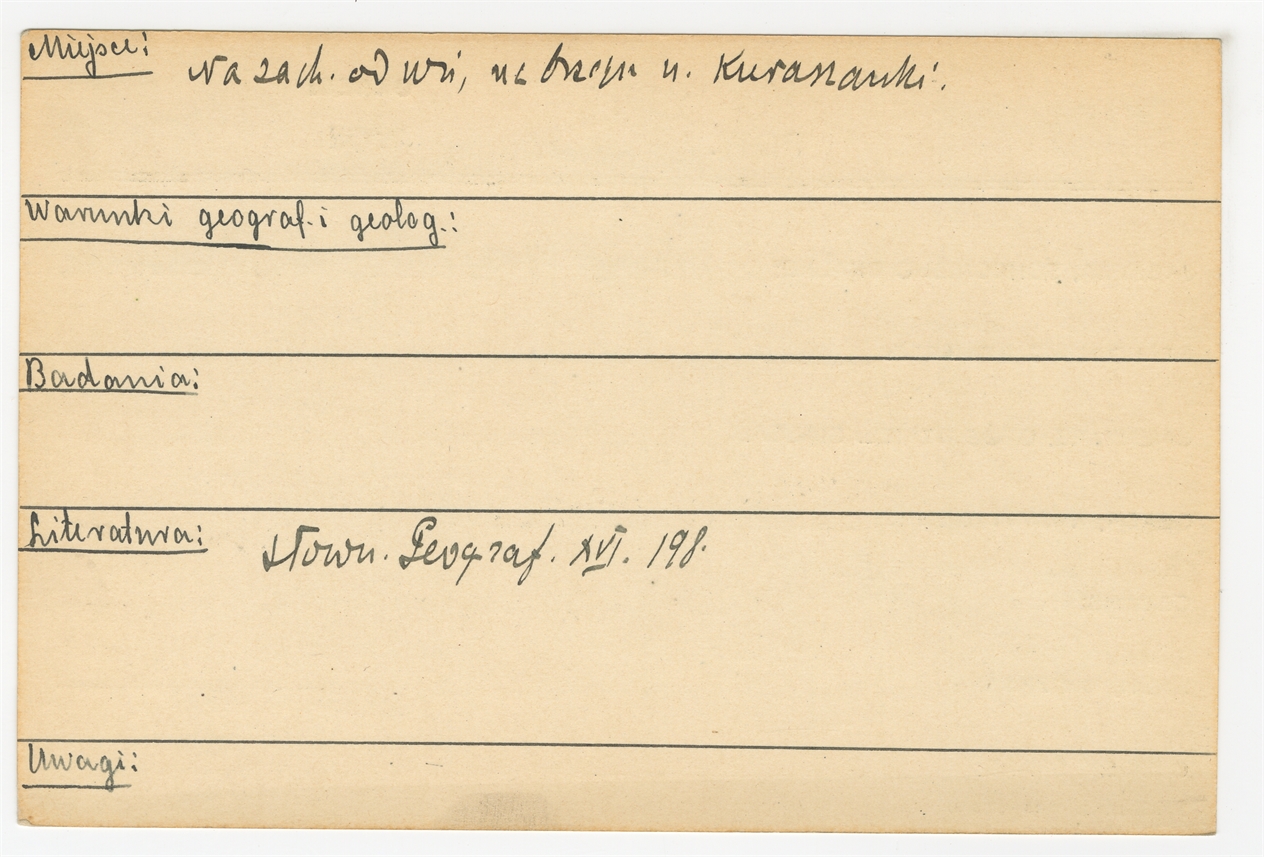 Miejsce: Na zach. od wsi, na brzegu rz. Kuraszanki.
Warunki geograf. i geolog.:
Badania:
Literatura: Słown. Geograf. XVI. 198.
Uwagi: